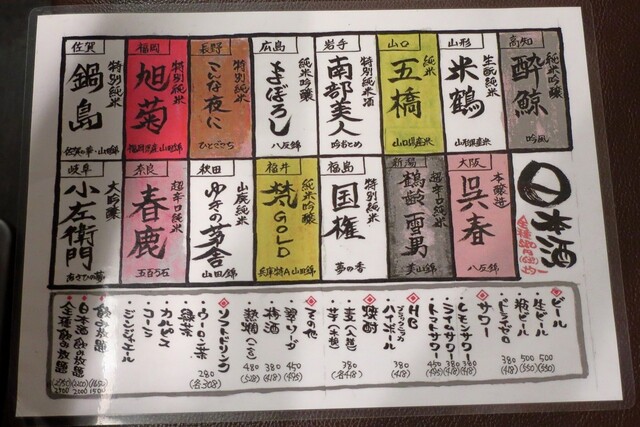 日本酒
高知
純米吟醸
酔鯨
吟風
山形
生酛純米
米鶴
山形県産米
山口
純米
五橋
山口県産米
岩手
特別純米酒
南部美人
吟おとめ
広島
純米吟醸
まぼろし
八反錦
長野
特別純米
こんな夜に
ひとごこち
福岡
特別純米
旭菊
福岡県産山田錦
佐賀
特別純米
鍋島
佐賀の華・山田錦
大阪
本醸造
呉春
八反錦
新潟
超辛口純米
鶴齢 雪男
美山錦
福島
特別純米
国権
夢の香
福井
純米吟醸
梵GOLD
兵庫特A山田錦
秋田
山廃純米
ゆきの茅舎
山田錦
奈良
超辛口純米
春鹿
五百万石
岐阜
大吟醸
小左衛門
あさひの夢
ビール
・生ビール 500 (550)
・瓶ビール 500 (550)
380 (418)
サワー
・レモンサワー 380 (418)
・ライムサワー 380 (418)
・トマトサワー 450 (495)
HB
ブラックニッカ
ハイボール 380 (418)
焼酎
・麦(人・想)
・芋(人・想)
380 (各418)
その他
450 (495)
・梅酒 380 (418)
・熱燗(二合) 480 (528)
ソフトドリンク
・ウーロン茶
・緑茶
・カルピス
・コーラ
・ジンジャエール
280 (各308)
飲み放題
・日本酒飲み放題